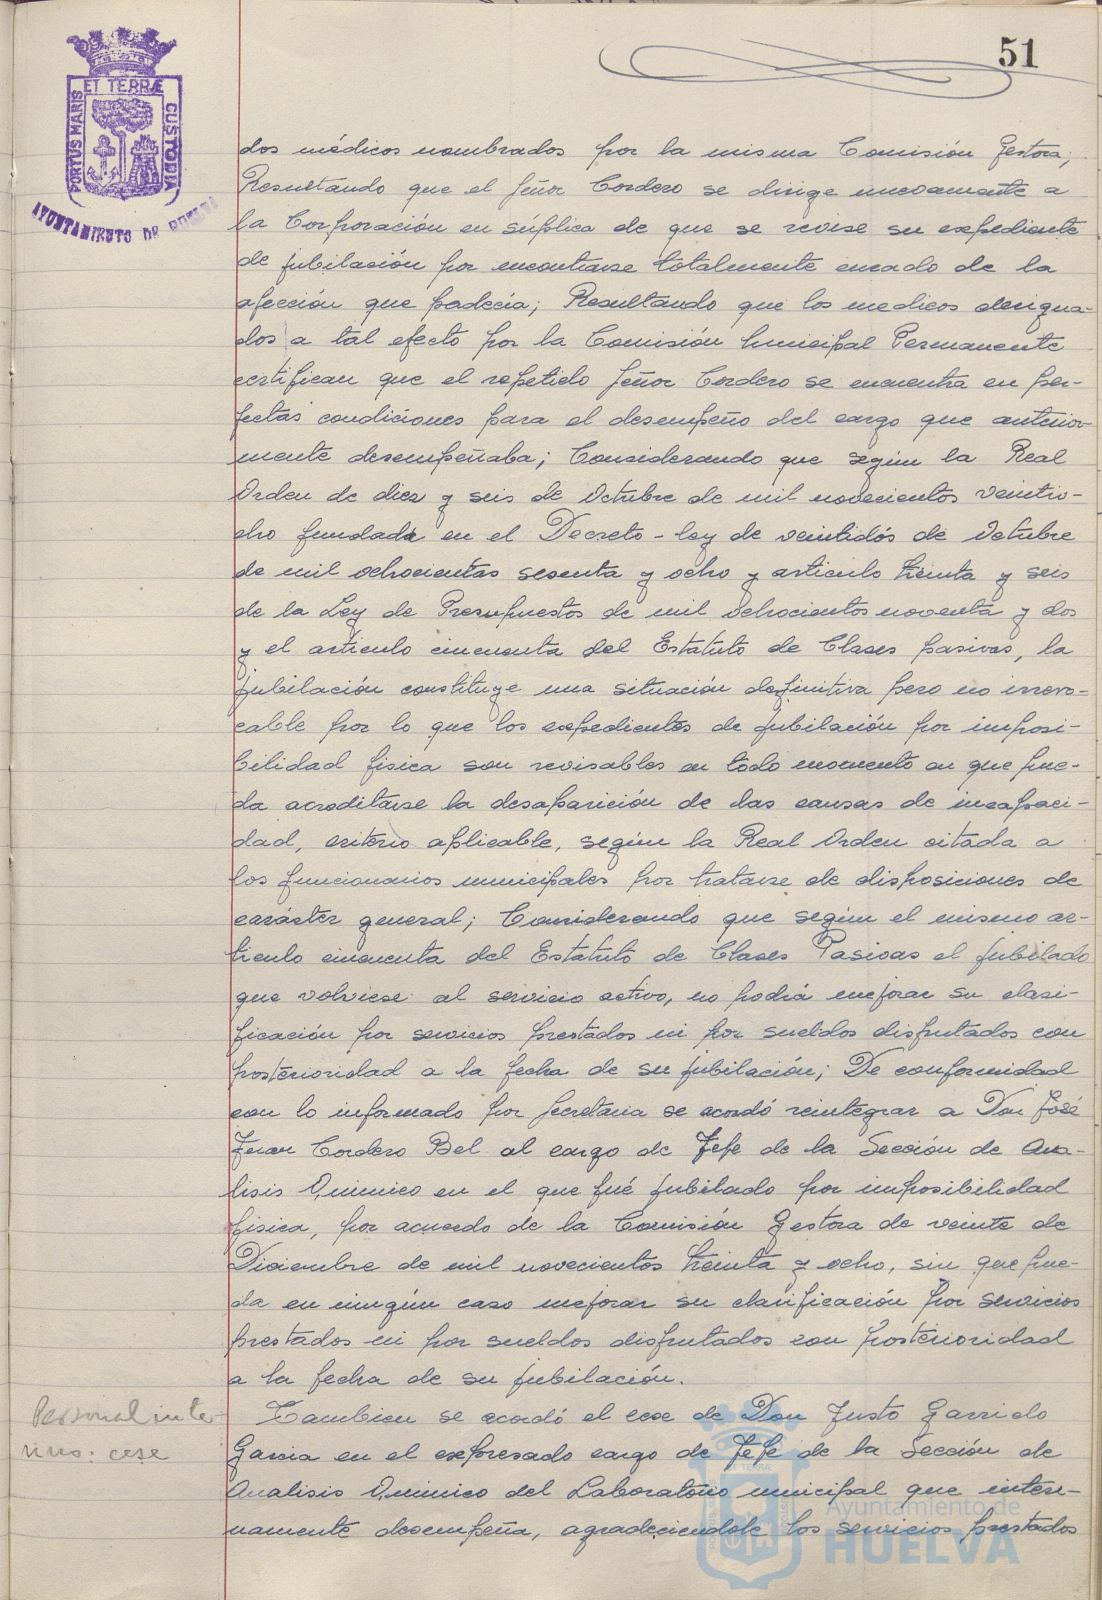 51
PORTUS MARIS ET TERRÆ CUSTODIA
AYUNTAMIENTO DE HUELVA
dos médicos nombrados por la misma Comisión Gestora;
Resultando que el Señor Cordero se dirige nuevamente a
la Corporación en súplica de que se revise su expediente
de jubilación por encontrarse totalmente curado de la
afección que padecía; Resultando que los medicos designa-
dos a tal efecto por la Comisión Municipal Permanente
certifican que el repetido Señor Cordero se encuentra en per-
fectas condiciones para el desempeño del cargo que anterior-
mente desempeñaba; Considerando que según la Real
Orden de diez y seis de Octubre de mil novecientos veintio-
cho fundada en el Decreto-ley de veintidós de Octubre
de mil ochocientas sesenta y ocho y articulo treinta y seis
de la Ley de Presupuestos de mil ochocientos noventa y dos
y el articulo cincuenta del Estatuto de Clases pasivas, la
jubilación constituye una situación definitiva pero no irrevo-
cable por lo que los expedientes de jubilación por imposi-
bilidad fisica son revisables en todo momento en que pue-
da acreditarse la desaparición de las causas de incapaci-
dad, criterio aplicable, según la Real Orden citada a
los funcionarios municipales por tratarse de disposiciones de
carácter general; Considerando que según el mismo ar-
ticulo cincuenta del Estatuto de Clases Pasivas el jubilado
que volviese al servicio activo, no podrá mejorar su clasi-
ficación por servicios prestados ni por sueldos disfrutados con
posterioridad a la fecha de su jubilación; De conformidad
con lo informado por Secretaria se acordó reintegrar a Don José
Juan Cordero Bel al cargo de Jefe de la Sección de Aná-
lisis Quimico en el que fué jubilado por imposibilidad
fisica, por acuerdo de la Comisión Gestora de veinte de
Diciembre de mil novecientos treinta y ocho, sin que pue-
da en ningún caso mejorar su clasificación por servicios
prestados ni por sueldos disfrutados con posterioridad
a la fecha de su jubilación.
Personal inte-
rino: cese
Tambien se acordó el cese de Don Justo Garrido
Garcia en el expresado cargo de Jefe de la Sección de
Analisis Quimico del Laboratorio municipal que interi-
namente desempeña, agradeciendole los servicios prestados
Ayuntamiento de
HUELVA